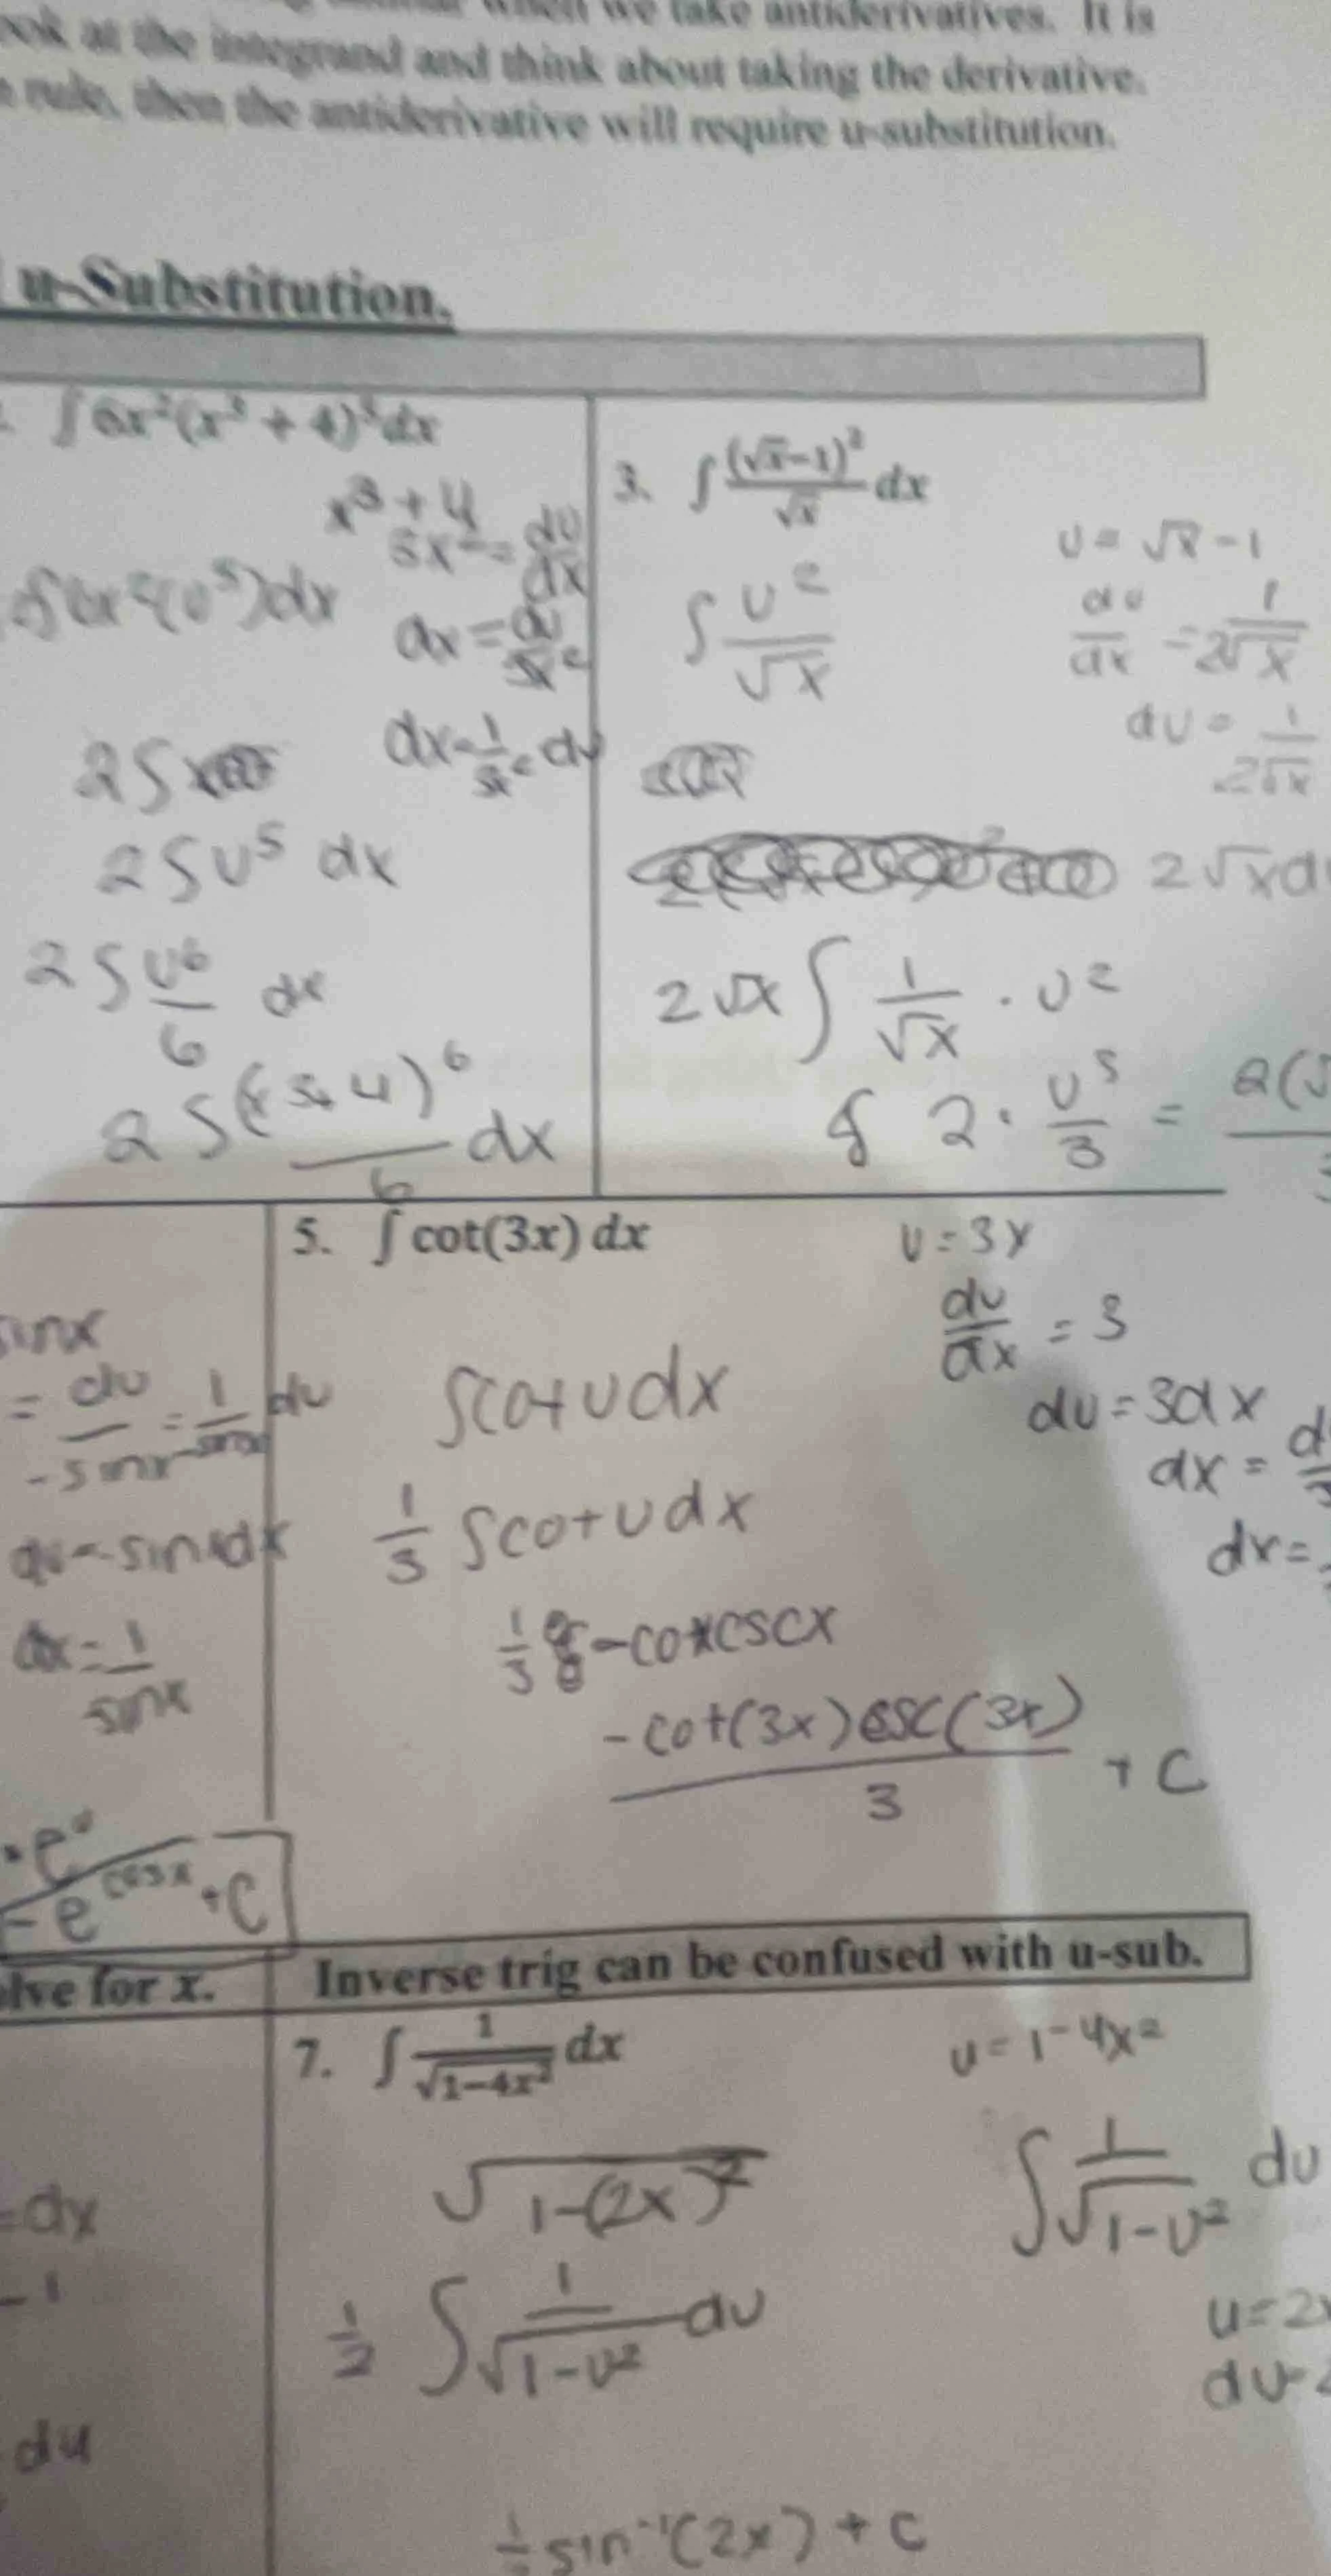 when we take antiderivatives. It is
ook at the integrand and think about taking the derivative.
rule, then the antiderivative will require u-substitution.
u-Substitution.
∫6x²(x³ + 4)⁵dx
x³ + 4
3x² = du/dx
∫6x²(u⁵)dx
dx = du/3x²
dx = 1/3x² du
2∫
2∫u⁵ dx
2∫ u⁶/6 dx
2∫ (x3+4)⁶/6 dx
3. ∫ (√x−1)²/√x dx
u = √x - 1
∫ u²/√x
du/dx = 1/2√x
du = 1/2√x
2√x d
2√x ∫ 1/√x · u²
2 · u³/3 = 2(√
sinx
= du/-sinx = 1/-sinx du
du=-sinxdx
dx = 1/sinx
e^u
-e^cosx + C
5. ∫ cot(3x) dx
u = 3x
du/dx = 3
∫cot u dx
du = 3dx
dx = d
1/3 ∫cot u dx
dx =
1/3 -cotxcscx
-cot(3x)csc(3x)/3 + C
olve for x.
Inverse trig can be confused with u-sub.
7. ∫ 1/√1−4x² dx
u = 1-4x²
√1-(2x)²
∫ 1/√1-u² du
1/2 ∫ 1/√1-u² du
u=2x
du=2
sin⁻¹(2x) + C
=dx
-1
du